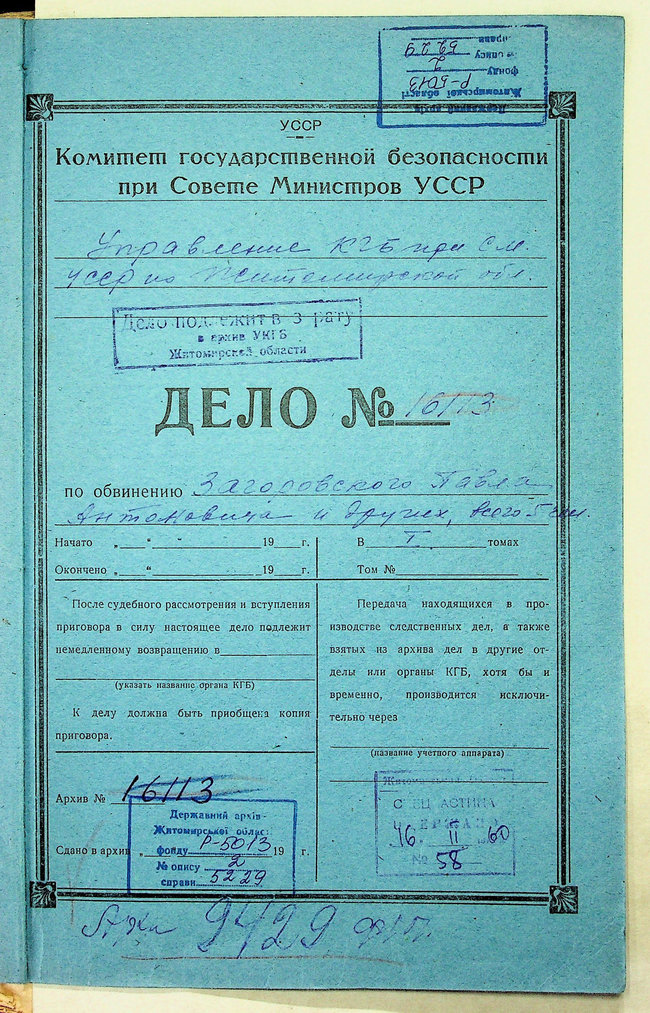 Державний архів
Житомирської області
фонду Р-5013
№ опису 2
справи 5229
УССР
Комитет государственной безопасности
при Совете Министров УССР
Управление КГБ при См.
УССР по Житомирской обл.
Дело подлежит в рату
в архив УКГБ
Житомирской области
ДЕЛО № 16113
по обвинению Загоровского Павла
Антоновича и других, всего 5 чел.
Начато „ “ 19 г.
Окончено „ “ 19 г.
В I томах
Том №
После судебного рассмотрения и вступления
приговора в силу настоящее дело подлежит
немедленному возвращению в
(указать название органа КГБ)
К делу должна быть приобщена копия
приговора.
Передача находящихся в про-
изводстве следственных дел, а также
взятых из архива дел в другие от-
делы или органы КГБ, хотя бы и
временно, производится исключи-
тельно через
(название учетного аппарата)
Архив № 16113
Сдано в архив „ 19 г.
Державний архів
Житомирської област
фонду Р-5013
№ опису 2
справи 5229
16. II 60
№ 58
9429